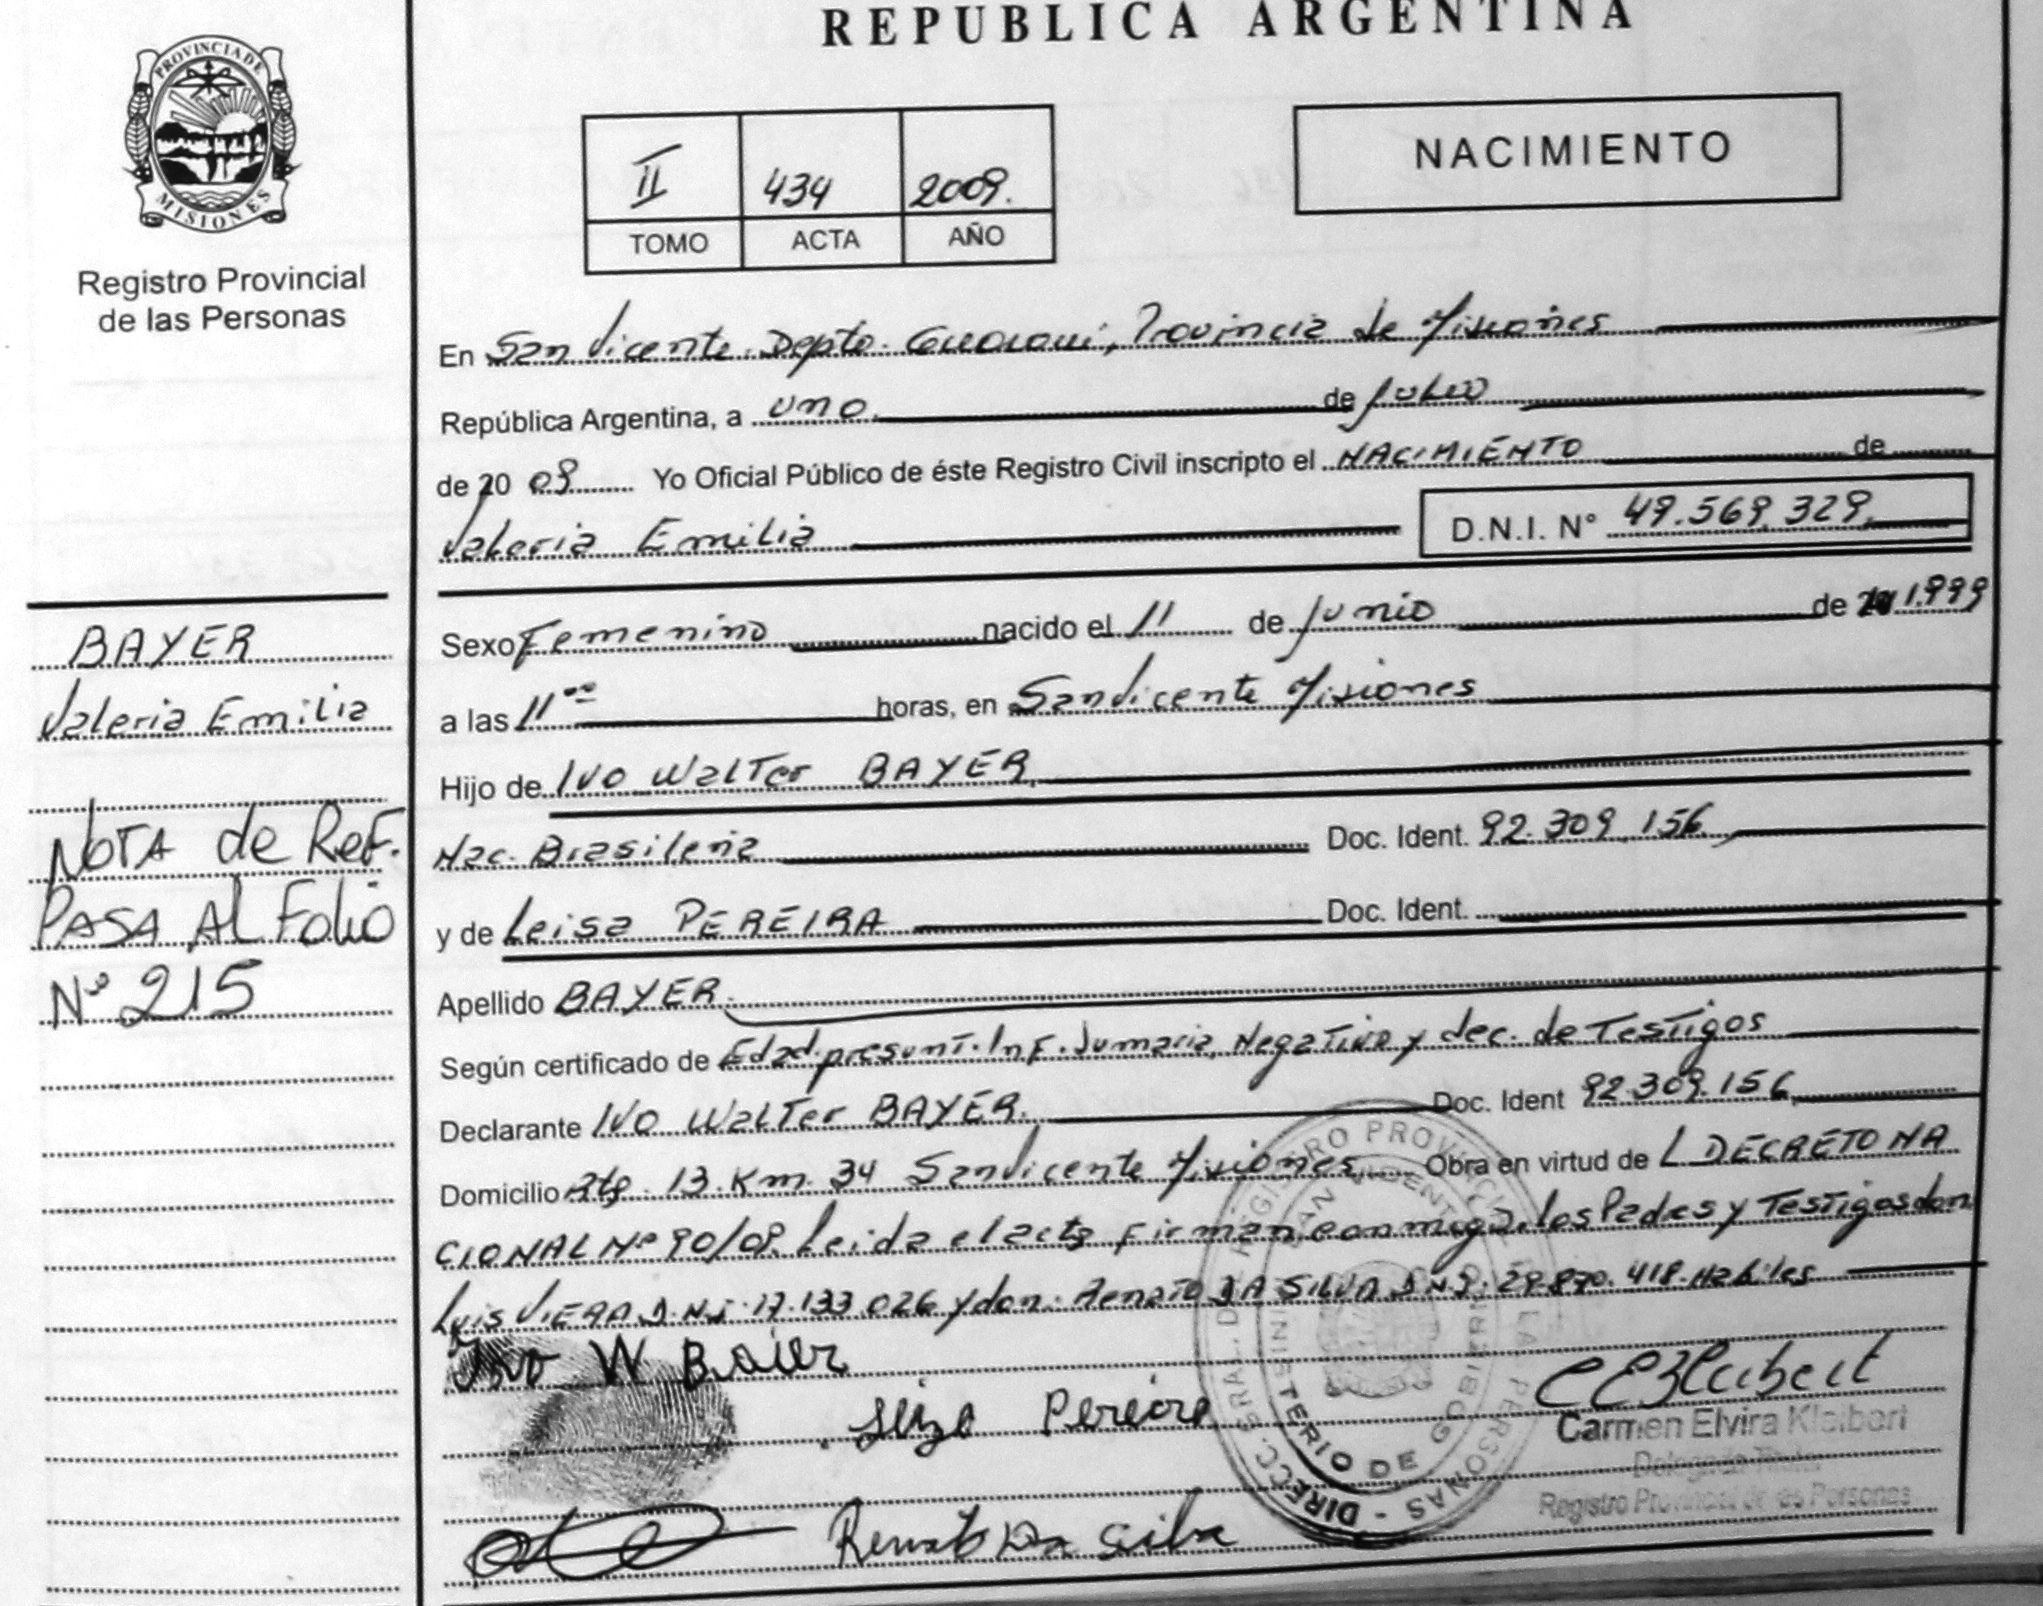 REPUBLICA ARGENTINA
PROVINCIA DE
MISIONES
Registro Provincial
de las Personas
II 434 2009.
TOMO ACTA AÑO
NACIMIENTO
En San Vicente. Depto. Guarani, Provincia de Misiones
República Argentina, a uno de Julio
de 20 09 Yo Oficial Público de éste Registro Civil inscripto el NACIMIENTO de
Valeria Emilia D.N.I. N° 49.569.329
Sexo Femenino nacido el 11 de Junio de 1.999
a las 11 °° horas, en San Vicente Misiones
Hijo de Ivo Walter BAYER
Nac. Brasileña Doc. Ident. 92.309.156
y de Leisa PEREIRA Doc. Ident.
Apellido BAYER
Según certificado de Edad. presunt. Inf. Sumaria, Negativa y dec. de Testigos
Declarante IVO Walter BAYER. Doc. Ident 92.309.156
Domicilio Rta. 13. Km. 34 San Vicente Misiones Obra en virtud de L DECRETO NA
CIONAL Nº 90/09. Leida el acta firman conmigo los Padres y Testigos don
Luis VIERA D.N.I. 17.133.026 y don. Renato DA SILVA D.N.I. 29.870.418. Habiles
BAYER
Valeria Emilia
NOTA de Ref.
PASA Al Folio
Nº 215
Ivo W Baier
Leiza Pereira
Carmen Elvira Kleibert
Delegada Titular
Registro Provincial de las Personas
Renato Da Silva
DIRECC. GRAL. DE REGISTRO PROVINCIAL DE LAS PERSONAS
MINISTERIO DE GOBIERNO
SAN VICENTE